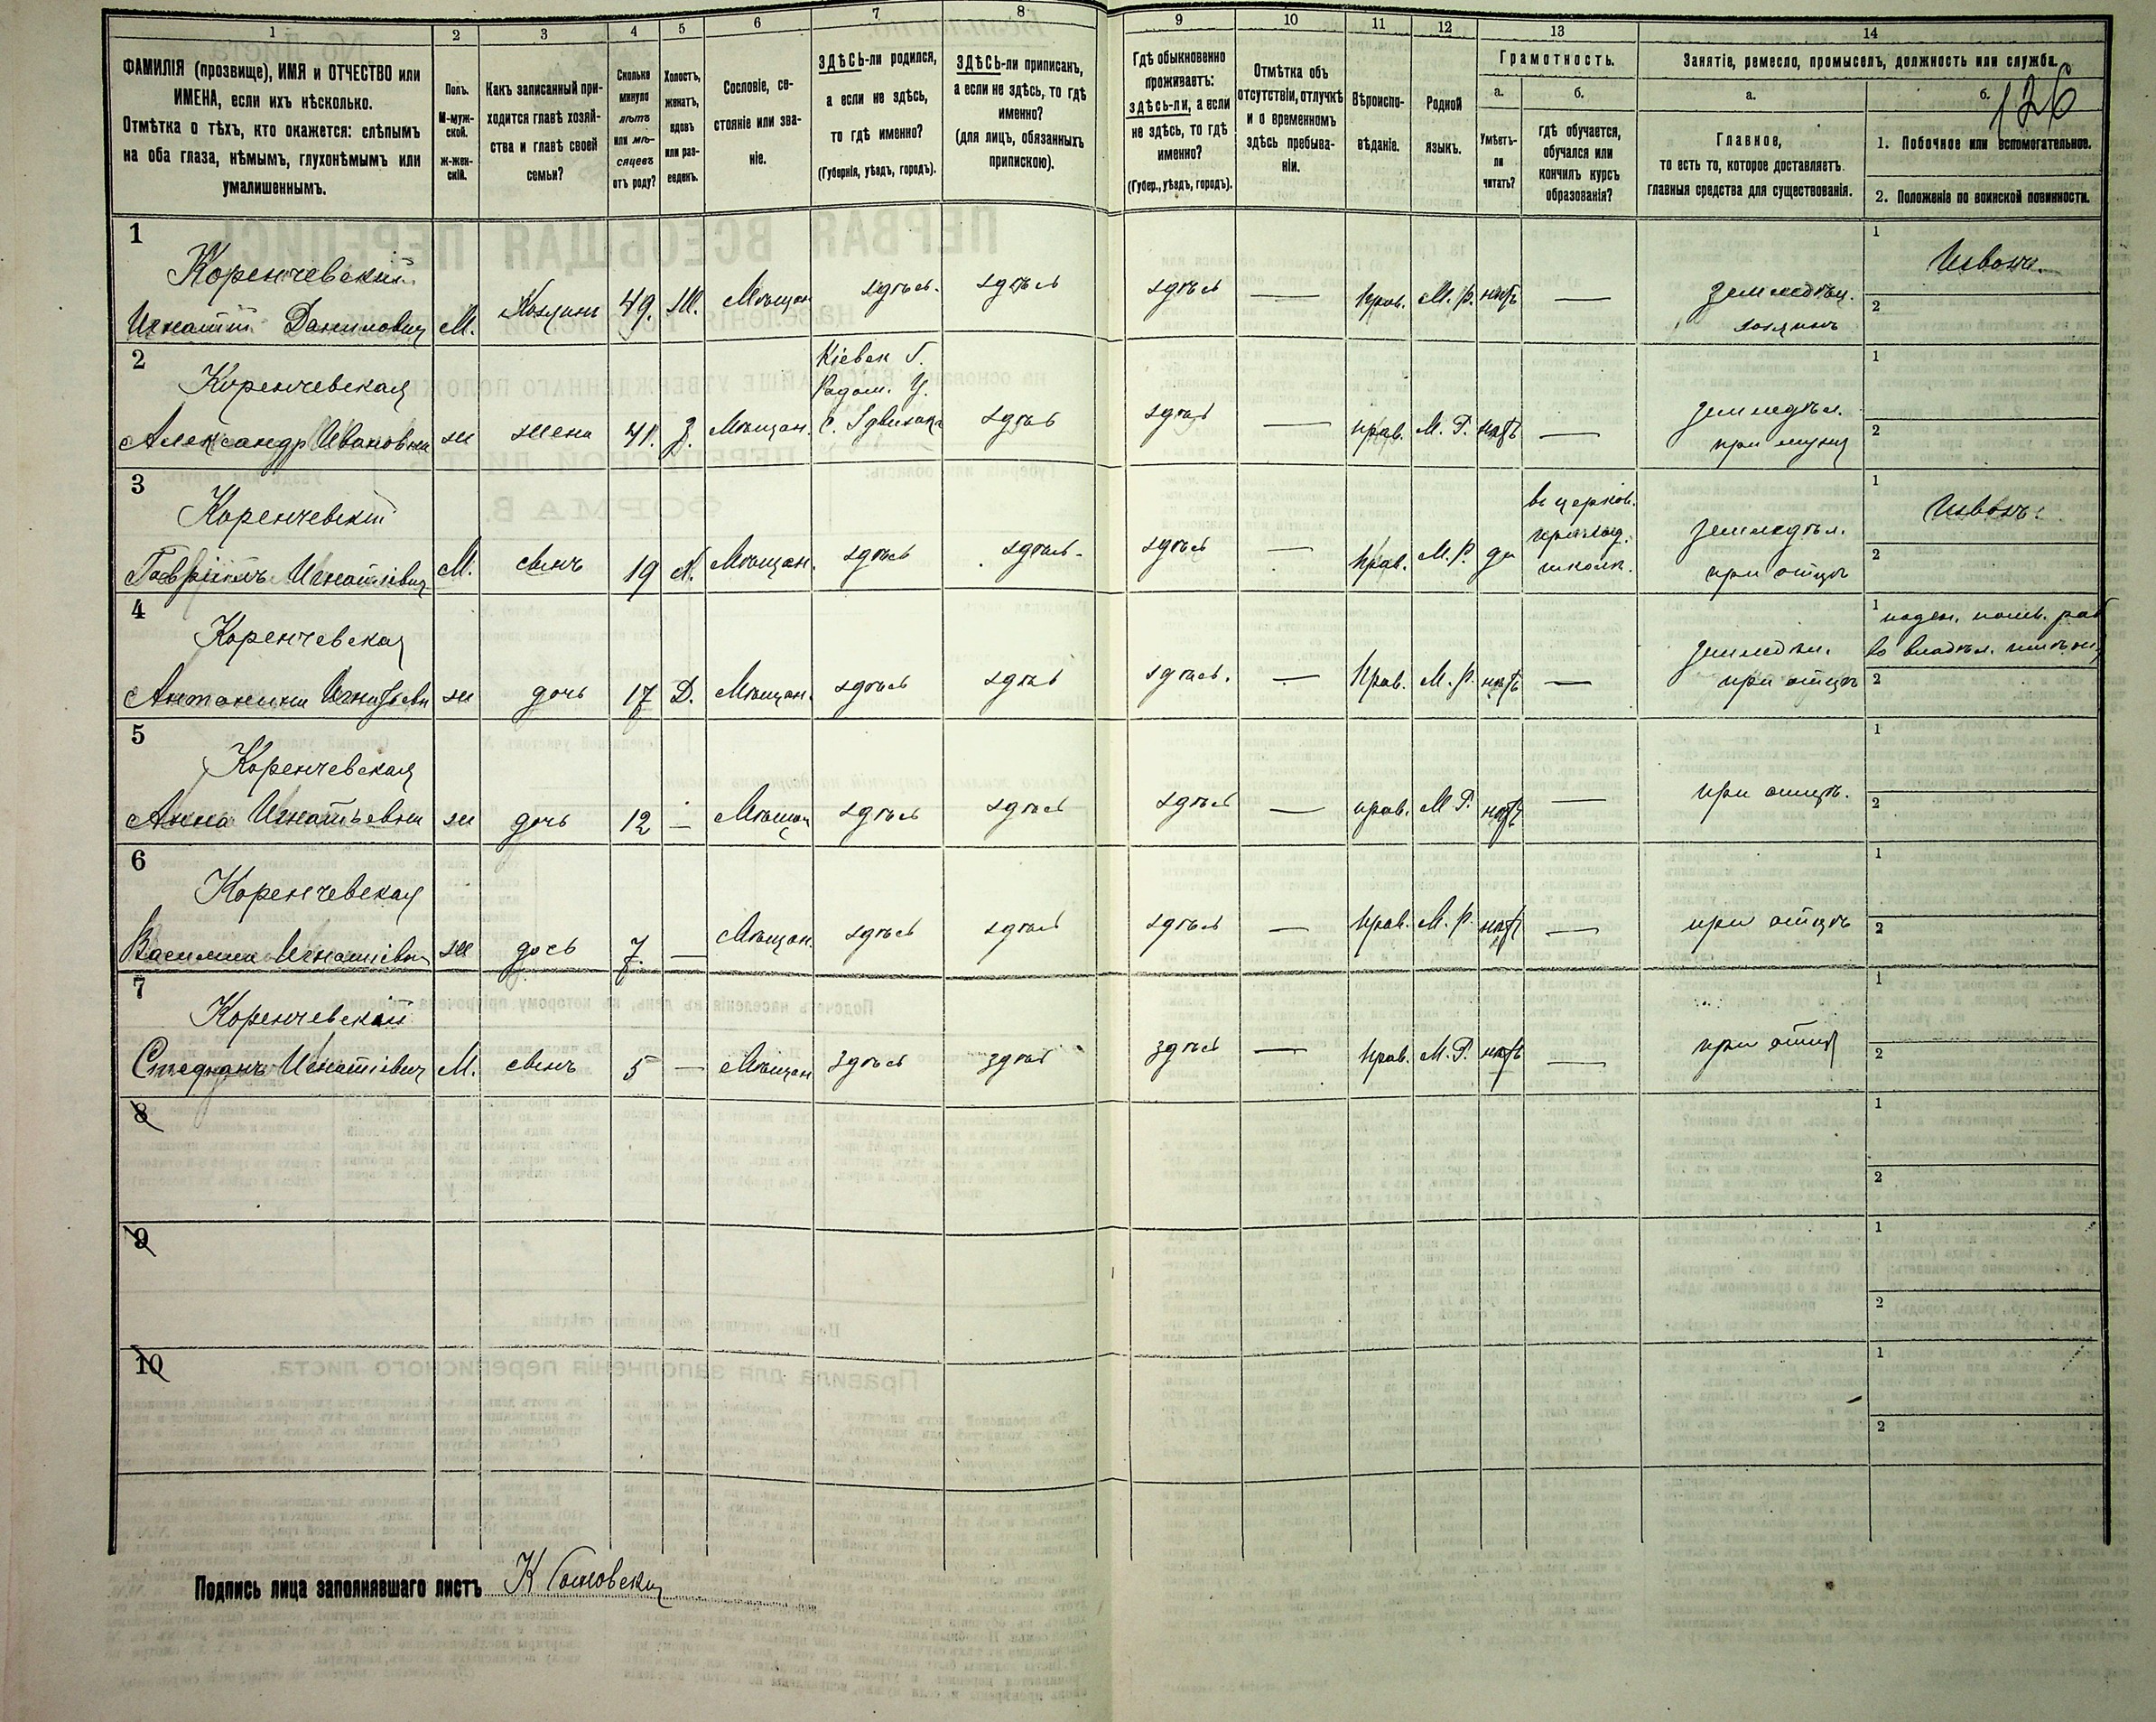 1 2 3 4 5 6 7 8 9 10 11 12 13 14
ФАМИЛІЯ (прозвище), ИМЯ и ОТЧЕСТВО или
ИМЕНА, если ихъ нѣсколько.
Отмѣтка о тѣхъ, кто окажется: слѣпымъ
на оба глаза, нѣмымъ, глухонѣмымъ или
умалишеннымъ.
Полъ.
М-муж-
ской.
ж-жен-
скій.
Какъ записанный при-
ходится главѣ хозяй-
ства и главѣ своей
семьи?
Сколько
минуло
лѣтъ
или мѣ-
сяцевъ
отъ роду?
Холостъ,
женатъ,
вдовъ
или раз-
веденъ.
Сословіе, со-
стояніе или зва-
ніе.
ЗДѢСЬ-ли родился,
а если не здѣсь,
то гдѣ именно?
(Губернія, уѣздъ, городъ).
ЗДѢСЬ-ли приписанъ,
а если не здѣсь, то гдѣ
именно?
(для лицъ, обязанныхъ
припискою).
Гдѣ обыкновенно
проживаетъ:
здѣсь-ли, а если
не здѣсь, то гдѣ
именно?
(Губер., уѣздъ, городъ).
Отмѣтка объ
отсутствіи, отлучкѣ
и о временномъ
здѣсь пребыва-
ніи.
Вѣроиспо-
вѣданіе.
Родной
языкъ.
Грамотность.
а.
Умѣетъ-
ли
читать?
б.
гдѣ обучается,
обучался или
кончилъ курсъ
образованія?
Занятіе, ремесло, промыселъ, должность или служба.
а.
Главное,
то есть то, которое доставляетъ
главныя средства для существованія.
б.
126
1. Побочное или вспомогательное.
2. Положеніе по воинской повинности.
1
Коренчевскій
Игнатій Даниловичъ М. Хозяинъ 49. Ж. Мѣщан здѣсь. здѣсь здѣсь — Прав. М. Р. нѣтъ — земледѣл.
хозяинъ
1 Извозч.
2
2
Коренчевская
Александр Ивановна ж жена 41. З. Мѣщан.
Кіевск Г.
Радом. У.
С. здѣсь здѣсь — прав. М. Р. нѣтъ — земледѣл.
при мужѣ
1
2
3
Коренчевскій
Гавріилъ Игнатіевич М. сынъ 19 Х. Мѣщан. здѣсь здѣсь. здѣсь — Прав. М. Р. да
въ церков.
приход.
школѣ.
земледѣл.
при отцѣ
1 Извозч.
2
4
Коренчевская
Антонина Игнатьевн ж дочь 17 Д. Мѣщан. здѣсь здѣсь здѣсь. — Прав. М. Р. нѣтъ — земледѣл.
при отцѣ
1 поден. полев. раб
во владѣл. имѣніи
2
5
Коренчевская
Анна Игнатьевна ж дочь 12 — Мѣщан здѣсь здѣсь здѣсь — прав. М Р. нѣтъ — при отцѣ.
1
2
6
Коренчевская
Василина Игнатіевн ж дочь 7. — Мѣщан. здѣсь здѣсь здѣсь — Прав. М. Р. нѣтъ — при отцѣ
1
2
7
Коренчевскій
Стефанъ Игнатіевич М. сынъ 5 — Мѣщан здѣсь здѣсь здѣсь — Прав. М. Р. нѣтъ — при отцѣ
1
2
8
1
2
9
1
2
10
1
2
Подпись лица заполнявшаго листъ